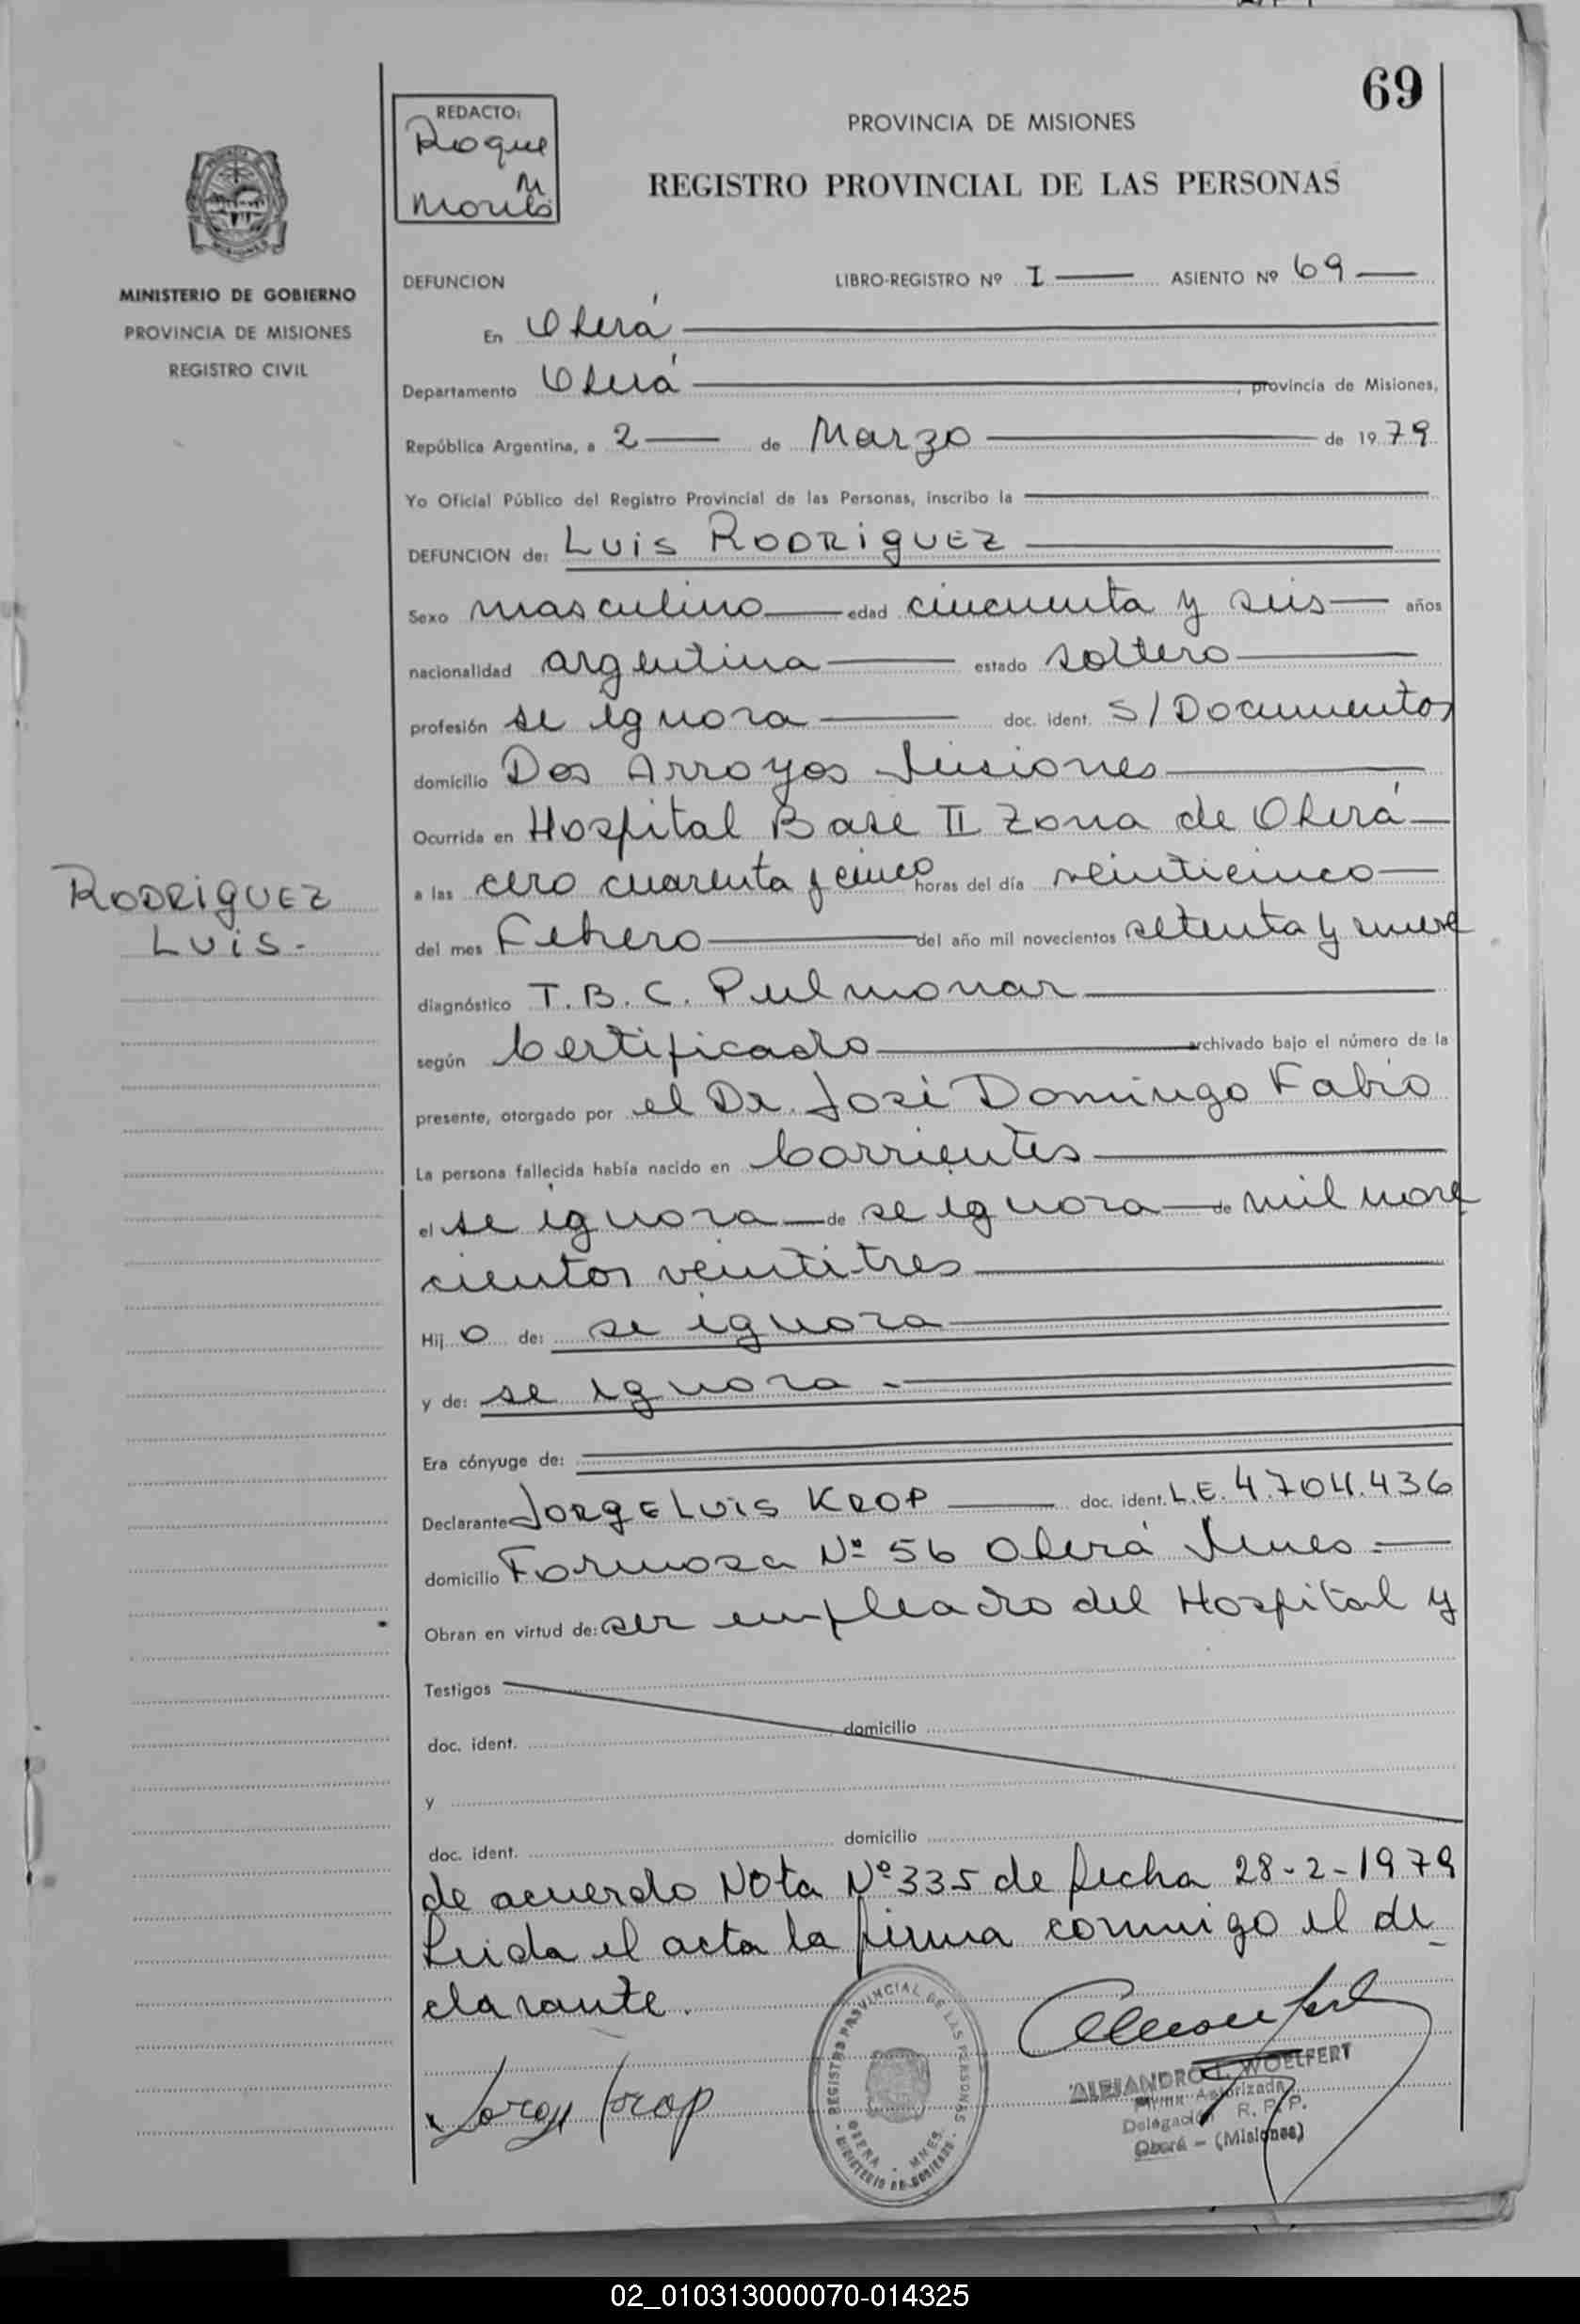 69
REDACTO:
Roque
PROVINCIA DE MISIONES
REGISTRO PROVINCIAL DE LAS PERSONAS
MINISTERIO DE GOBIERNO
PROVINCIA DE MISIONES
REGISTRO CIVIL
DEFUNCION LIBRO-REGISTRO Nº I ASIENTO Nº 69
En Oberá
Departamento Oberá, provincia de Misiones,
República Argentina, a 2 de Marzo de 1979
Yo Oficial Público del Registro Provincial de las Personas, inscribo la
DEFUNCION de: Luis RODRiguEZ
Sexo masculino edad cincuenta y seis años
nacionalidad argentina estado soltero
profesión se ignora doc. ident. S/Documentos
domicilio Dos Arroyos Misiones
Ocurrida en Hospital Base II Zona de Oberá
RODRiguEZ
Luis.
a las cero cuarenta y cinco horas del día veinticinco
del mes Febrero del año mil novecientos setenta y nueve
diagnóstico T.B.C. Pulmonar
según Certificado archivado bajo el número de la
presente, otorgado por el Dr. José Domingo Fabio
La persona fallecida había nacido en Corrientes
el se ignora de se ignora de mil nove
cientos veintitres
Hij o de: se ignora
y de: se ignora.
Era cónyuge de:
Declarante JORgE Luis KROP doc. ident. L.E. 4.704.436
domicilio Formosa Nº 56 Oberá Mnes.
Obran en virtud de: ser empleado del Hospital y
Testigos
doc. ident. domicilio
y
doc. ident. domicilio
de acuerdo Nota Nº 335 de fecha 28-2-1979
Leida el acta la firma conmigo el de
clarante.
REGISTRO PROVINCIAL DE LAS PERSONAS
OBERA - MNES.
MINISTERIO DE GOBIERNO
Jorge Krop
ALEJANDRO L. WOELFERT
Firma Autorizada
Delegación R. P. P.
Oberá - (Misiones)
02_010313000070-014325